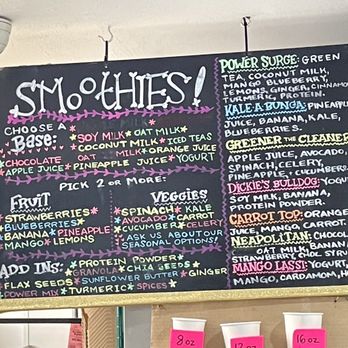 SMOOTHIES!
CHOOSE A
BASE:
SOY MILK * OAT MILK
COCONUT MILK * ICED TEAS
CHOCOLATE OAT MILK * ORANGE JUICE
APPLE JUICE * PINEAPPLE JUICE * YOGURT
PICK 2 OR MORE:
FRUIT
STRAWBERRIES
BLUEBERRIES
BANANA * PINEAPPLE
MANGO * LEMONS
VEGGIES
SPINACH * KALE
AVOCADO * CARROT
CUCUMBER * CELERY
ASK US ABOUT OUR
SEASONAL OPTIONS!
ADD INS: * PROTEIN POWDER
GRANOLA * CHIA SEEDS
FLAX SEEDS * SUNFLOWER BUTTER * GINGER
POWER MIX * TURMERIC * SPICES
POWER SURGE: GREEN
TEA, COCONUT MILK,
MANGO, BLUEBERRY,
LEMONS, GINGER, CINNAMON
TURMERIC, PROTEIN.
KALE-A-BUNGA: PINEAPPLE
JUICE, BANANA, KALE,
BLUEBERRIES.
GREENER THE CLEANER
APPLE JUICE, AVOCADO,
SPINACH, CELERY,
PINEAPPLE, CUCUMBERS.
DICKIE'S BULLDOG: YOGURT
SOY MILK, BANANA,
PROTEIN.
CARROT TOP: ORANGE
JUICE, MANGO, CARROT
NEAPOLITAN: CHOCO
OAT MILK, BANANA
STRAWBERRY, CHOC. SYR
MANGO LASSI: YOGURT,
MANGO, CARDAMOM, H
8 OZ
12 OZ
16 OZ